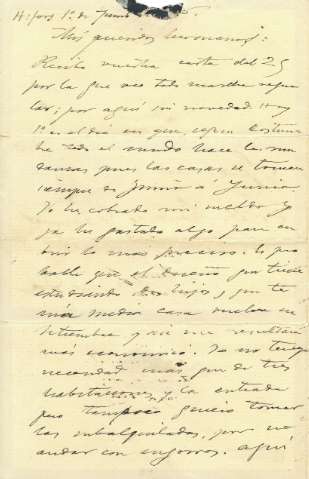 1º de Junio
Mis queridos hermanos:
Recibo vuestra carta del 25
por la que veo todo marcha regu
lar; por aquí sin novedad Hoy
1º es el día en que, según costum
bre todo el mundo hace las mu
danzas pues las casas se toman
siempre de Junio a Junio
Yo he cobrado mi sueldo y
ya he gastado algo para cu
brir lo mas preciso.
que el Dueño
estudiando dos hijos y
casa vuelve en
Setiembre y
mas económico. Yo no tengo
necesidad mas que de tres
habitaciones y la entrada
pero tampoco quiero tomar
las subalquiladas, por no
andar con engorros. Aquí